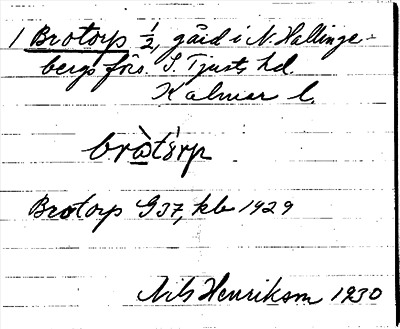 1 Brotorp 1/2, gård i N. Hallinge-
bergs förs. S. Tjusts hd.
Kalmar l.
bròtórp
Brotorp G37, kb 1929
Nils Henrikson 1930